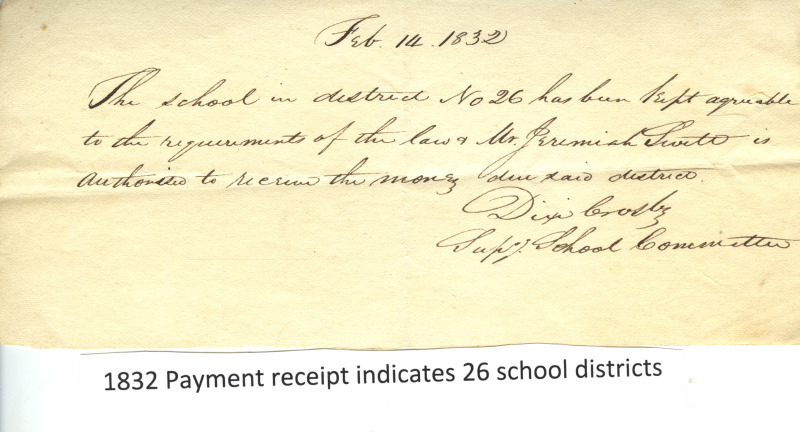 Feb. 14. 1832
The school in district No 26 has been kept agreeable
to the requirements of the law & Mr. Jeremiah Swett is
authorised to receive the money due said district.
Dixi Crosby
Supg. School Committee
1832 Payment receipt indicates 26 school districts